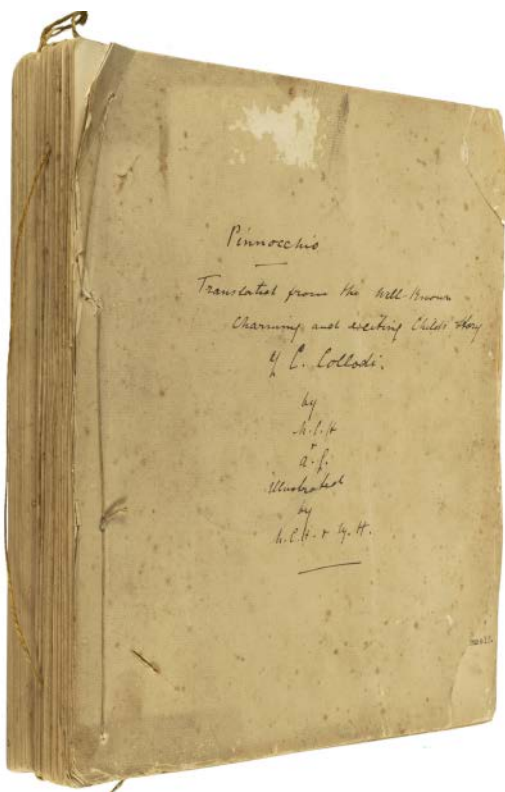 Pinnocchio
Translated from the Well-Known
Charming and exciting Childs' Story
of C. Collodi.
by
+
a.g.
illustrated
by